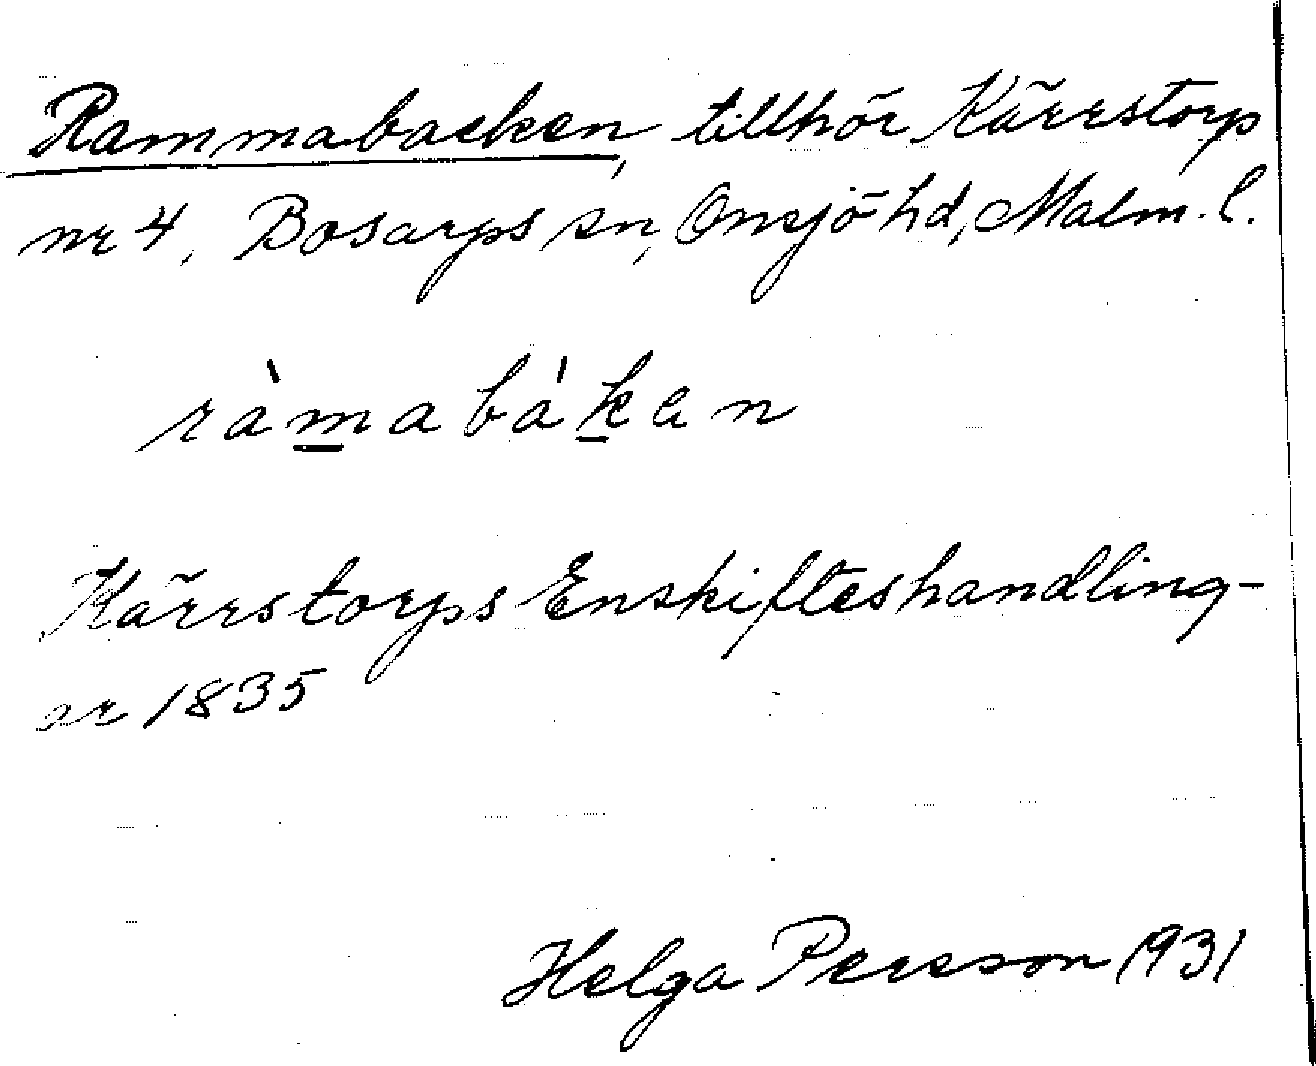 Rammabacken, tillhör Kärrstorp
nr 4, Bosarps sn, Onsjö hd, Malm. l.
ràmabáken
Kärrstorps Enskifteshandling-
ar 1835
Helga Persson 1931